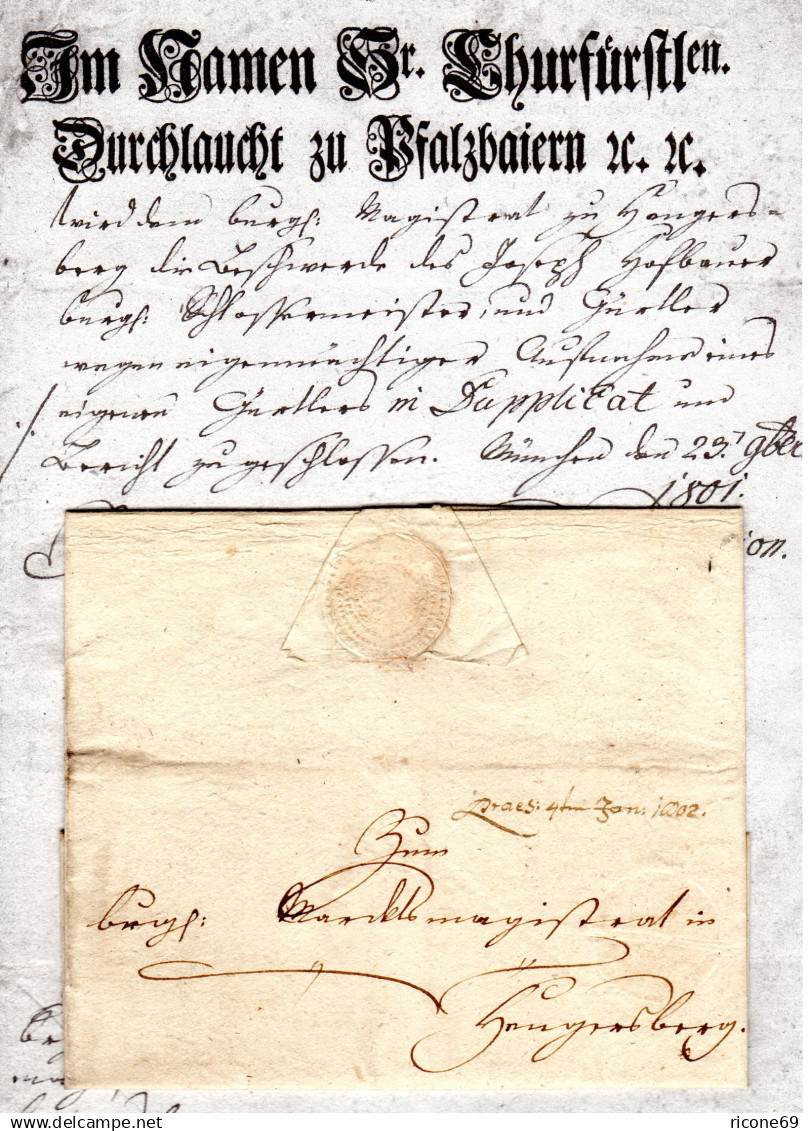 Im Namen Sr. Churfürstlen.
Durchlaucht zu Pfalzbaiern ꝛc. ꝛc.
wird dem burgl: Magistrat zu Hengers=
berg die Beschwerde des Joseph Hofbauer
burgl: Schlossermeister, und Gürtler
wegen eigenmächtiger Aufnahme eines
eigenen Gürtlers in Dupplicat und
Bericht zugeschlossen. München den 23.t 9ber
1801.
ion.
Praes: 4ten Jan: 1802.
Zum
burgl: Marcktsmagistrat in
Hengersberg.
delcampe.net
ricone69